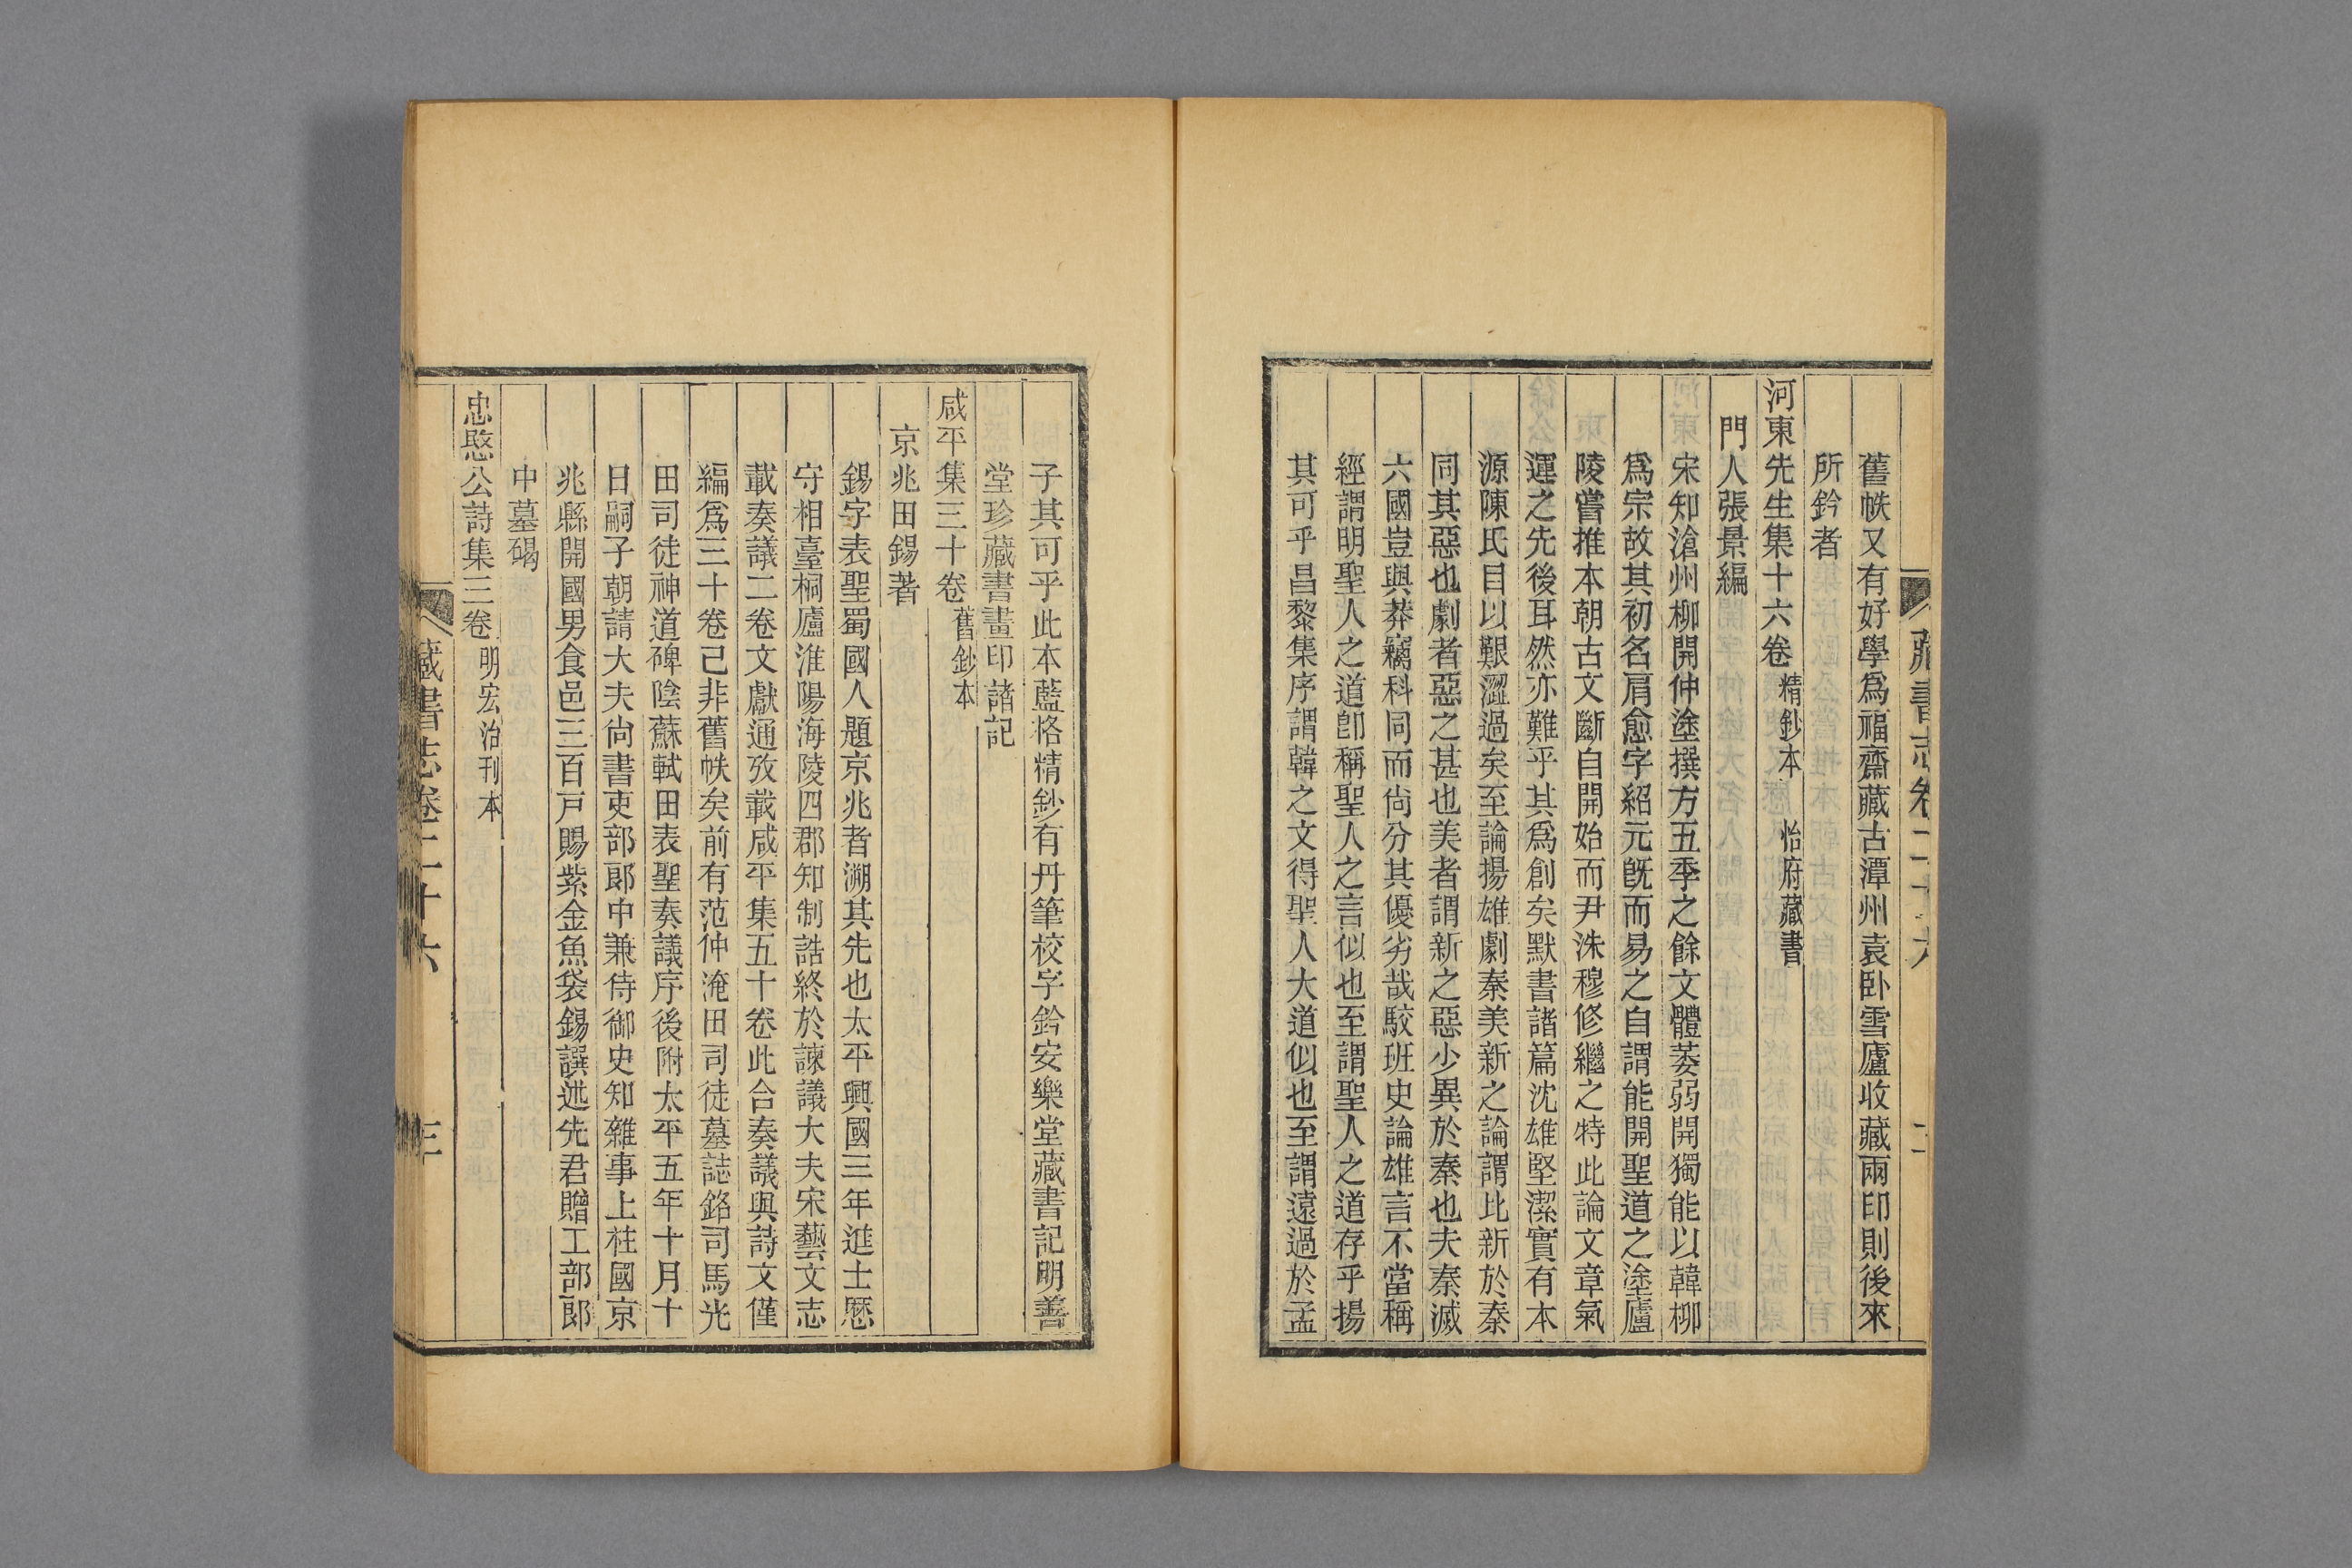 舊帙又有好學爲福齋藏古潭州袁臥雪廬收藏兩印則後來
所鈐者
河東先生集十六卷 精鈔本 怡府藏書
門人張景編
宋知滄州柳開仲塗撰方五季之餘文體萎弱開獨能以韓柳
爲宗故其初名肩愈字紹元旣而易之自謂能開聖道之塗廬
陵嘗推本朝古文斷自開始而尹洙穆修繼之特此論文章氣
運之先後耳然亦難乎其爲創矣默書諸篇沈雄堅潔實有本
源陳氏目以艱澀過矣至論揚雄劇秦美新之論謂比新於秦
同其惡也劇者惡之甚也美者謂新之惡少異於秦也夫秦滅
六國豈與莽竊科同而尙分其優劣哉駮班史論雄言不當稱
經謂明聖人之道卽稱聖人之言似也至謂聖人之道存乎揚
其可乎昌黎集序謂韓之文得聖人大道似也至謂遠過於孟
子其可乎此本藍格精鈔有丹筆校字鈐安樂堂藏書記明善
堂珍藏書畫印諸記
咸平集三十卷 舊鈔本
京兆田錫著
錫字表聖蜀國人題京兆者溯其先也太平興國三年進士歷
守相臺桐廬淮陽海陵四郡知制誥終於諫議大夫宋藝文志
載奏議二卷文獻通攷載咸平集五十卷此合奏議與詩文僅
編爲三十卷已非舊帙矣前有范仲淹田司徒墓誌銘司馬光
田司徒神道碑陰蘇軾田表聖奏議序後附太平五年十月十
日嗣子朝請大夫尙書吏部郞中兼侍御史知雜事上柱國京
兆縣開國男食邑三百戸賜紫金魚袋錫譔述先君贈工部郞
中墓碣
忠愍公詩集三卷 明宏治刊本
藏書志卷二十六 三